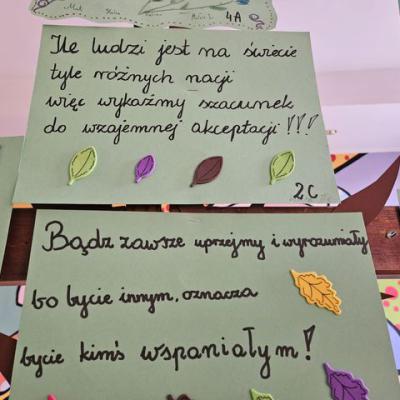 4A
Ile ludzi jest na świecie
tyle różnych nacji
więc wykażmy szacunek
do wzajemnej akceptacji!!!
2c
Bądz zawsze uprzejmy i wyrozumiały
bo bycie innym, oznacza
bycie kimś wspaniałym!